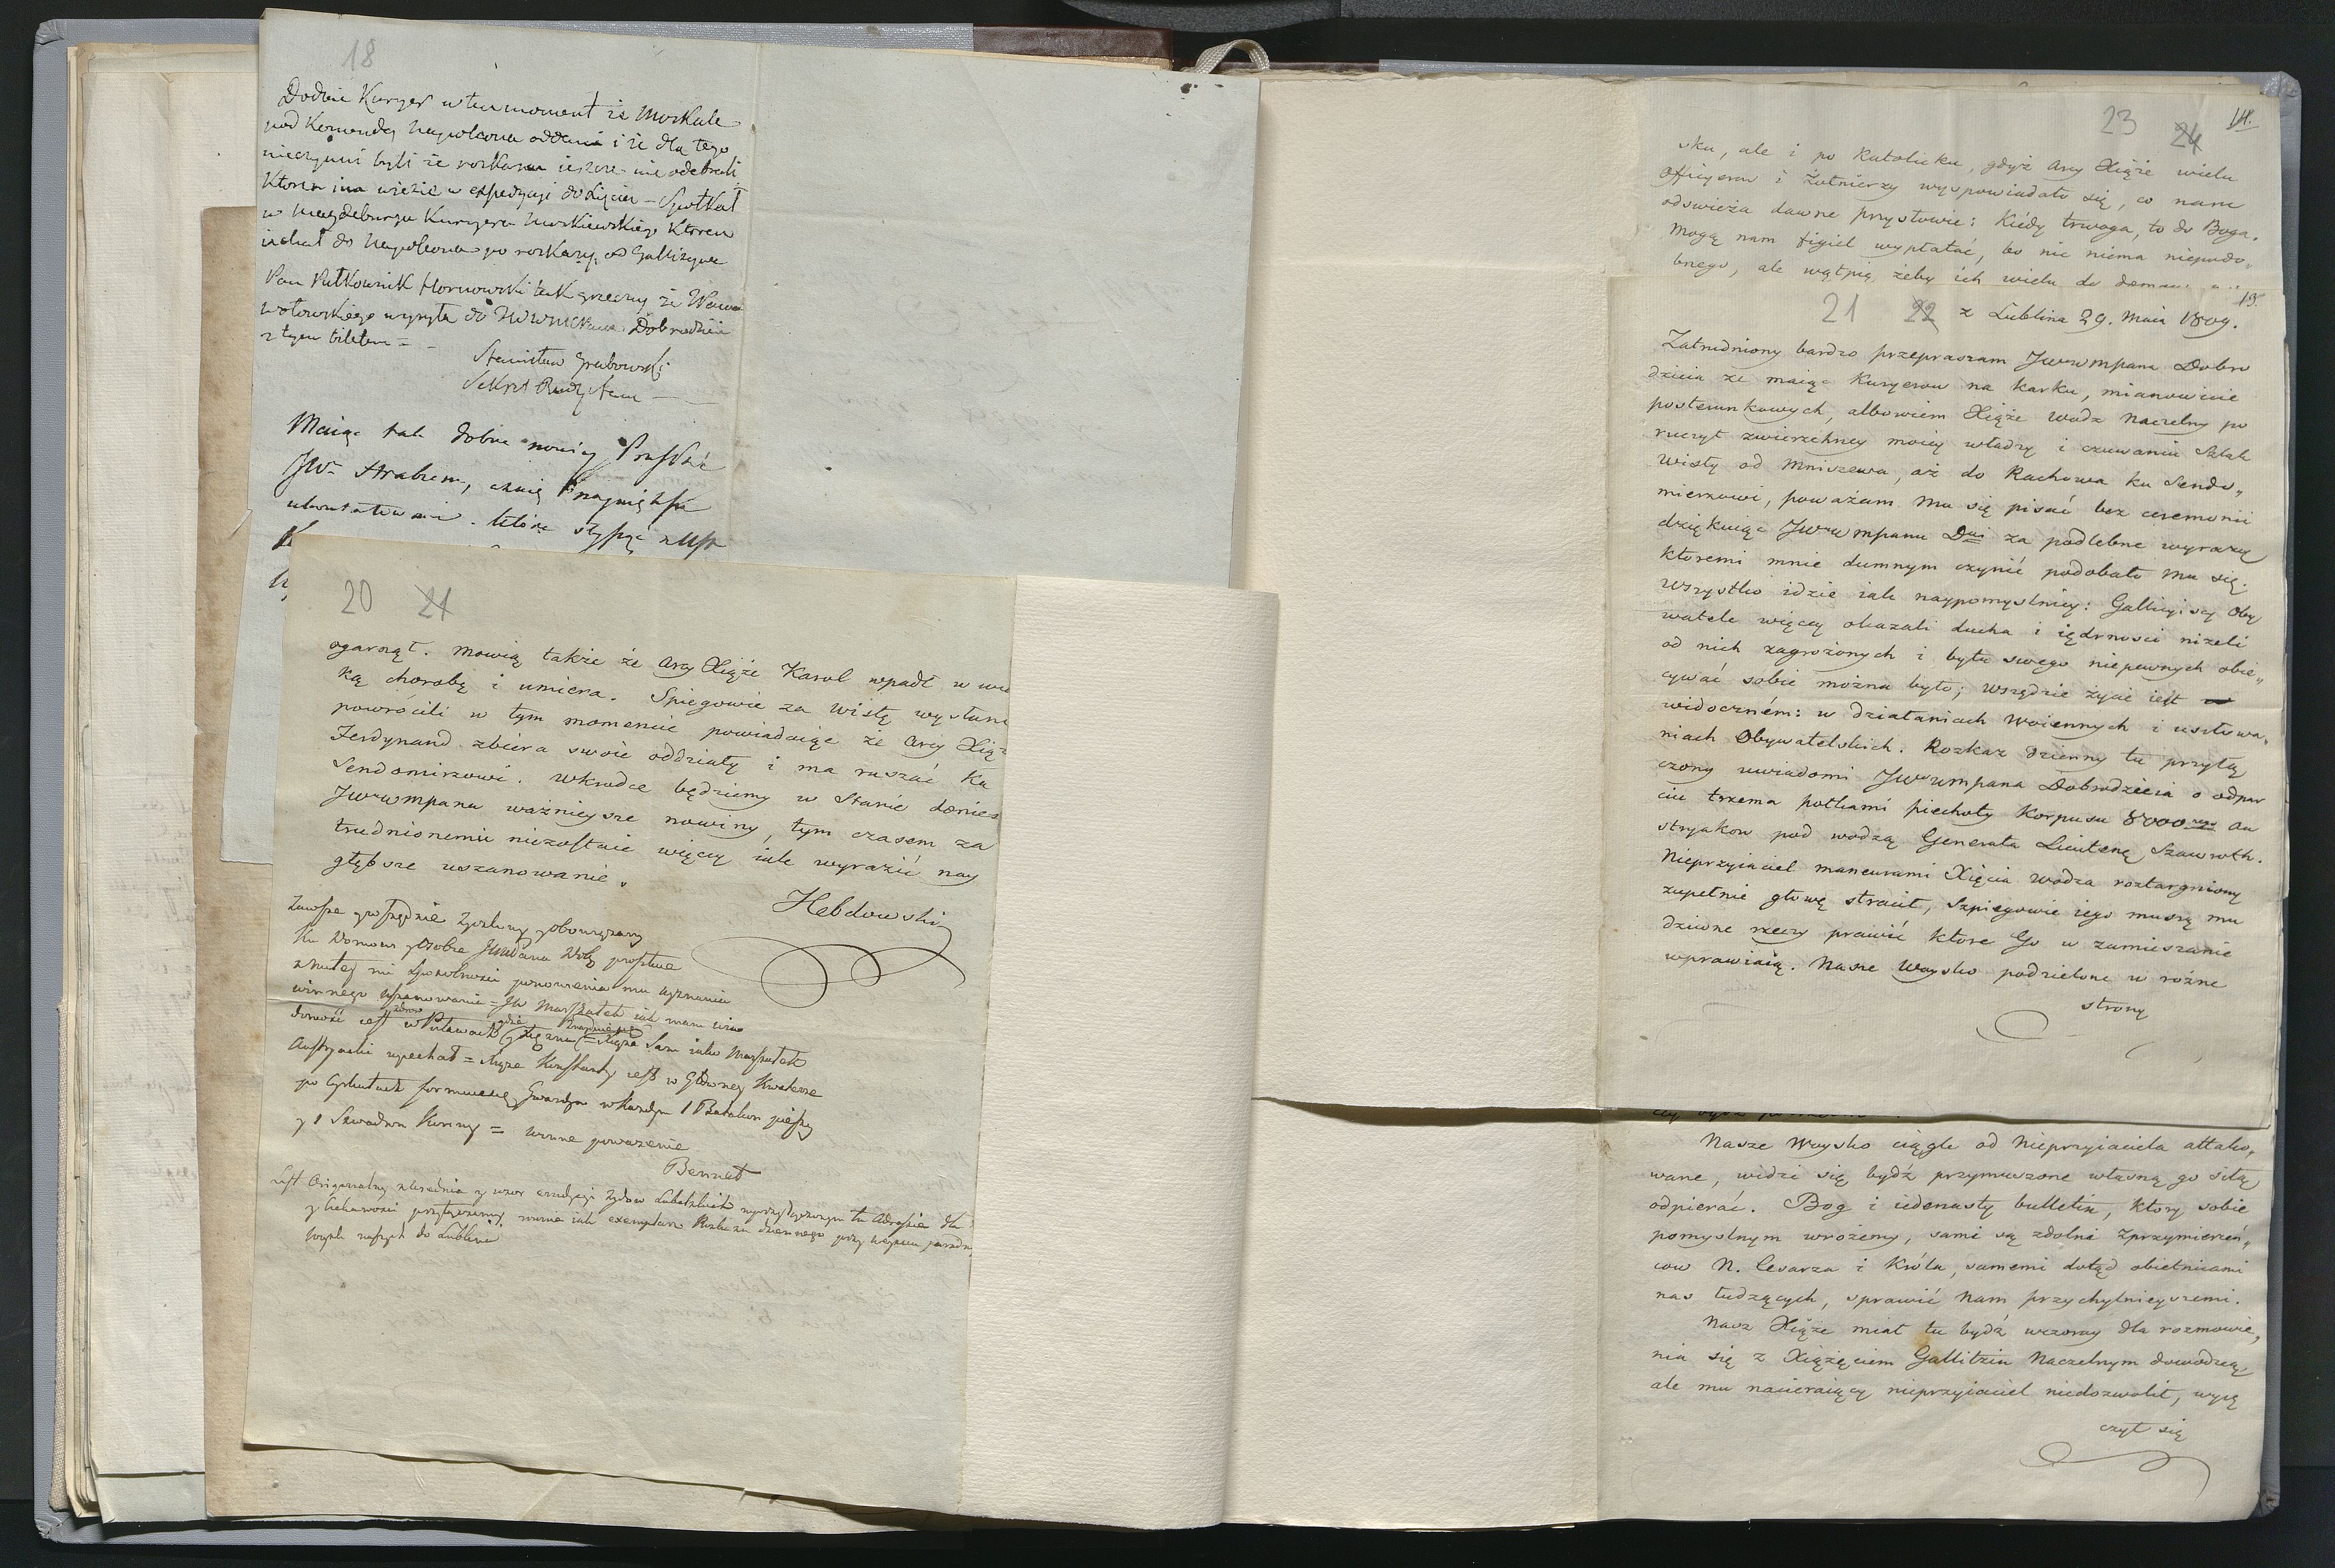 18
Dodaie Kuryer w ten moment że Moskale
pod Komendę Napoleona oddani i że dla tego
nieczynni byli że roskazu ieszcze nie odebrali
Ktoren ion wiezie w expedycyi do Xięcia – Spotkał
w Magdeburgu Kuryera Moskiewskiego Ktoren
iechał do Napoleona po roskazy od Gallizyna
Pan Pułkownik Hornowski tak grzeczny że
wysyła do Dobrodzieia
z tym biletem = -
Stanisław Grabowski
Sekret
Maiąc tak dobre nowiny
JW. Hrabiem, naywiększe
ukontentowanie. Które
20 21
ogarnął. mowią także że Arcy Xiąże Karol wpadł w
ką chorobę i umiera. Spiegowie za Wisłę wysłani
powrócili w tym momencie powiadaiąc że Arcy Xiąż
Ferdynand zbiera swoie oddziały i ma ruszać Ku
Sendomirzowi. Wkrodce będziemy w Stanie donieś
JWWMpanu ważnieysze nowiny, tym czasem za
trudnionemu niezostaie więcey iak wyrazić nay
głębsze uszanowanie.
Hebdowski
Zawsze y wszędzie życzliwy y obowiązany
Ku Domowi y Osobie JWPana
z mey mu sposobności ponowienia mu wyznania
winnego uszanowania = JW Marszałek iak mam wia
domość iest zdrow w Puławach gdzie Xiąże Sam iako Marszałek
Austryacki wyiechał = Xiąże Konstanty iest w Głowney Kwaterze
po Cyrkułach formuie się Gwardya w Każdym 1 Batalion pieszy
y 1 Szwadron Konny = winne poważenie
Bennet
List Originalny
z ciekawości przyłączamy, rownie iak exemplarz Rozkazu dziennego przy
naszych do Lublina
23 24 14.
sku, ale i po Katolicku, gdyż Arcy Xiąże wielu
Officyerow i Żołnierzy wyspowiadało się, co nam
odswieża dawne przysłowie: Kiédy trwoga, to do Boga.
Mogą nam figiel wypłatać, bo nic niema niepodo„
bnego, ale wątpię żeby ich wielu do domu
13.
21 22 z Lublina 29. Maia 1809.
Zatrudniony bardzo przepraszam JWWMpana Dobro
dzieia że maiąc Kuryerow na karku, mianowicie
posterunkowych, albowiem Xiąże wodz Naczelny po
ruczył zwierzchney moiey władzy i czuwaniu Szlak
Wisły od Mniszewa, aż do Rachowa ku Sendo„
mierzowi, poważam mu się pisać bez ceremonii
dziękuiąc JWWMpanu Dni za podlebne wyrazy
ktoremi mnie dumnym czynić podobało mu się.
Wszystko idzie iak naypomyslniey: Gallicyiscy Oby
watele więcey okazali ducha i iędrnosci niżeli
od nich zagrożonych i bytu swego niepewnych obie„
cywać sobie można było; wszędzie życie iest
widoczném: w działaniach woiennych i usiłowa„
niach Obywatelskich. Rozkaz dzienny tu przyłą
czony uwiadomi JWWMpana Dobrodzieia o odpar
ciu trzema połkami piechoty Korpusu 8000 Au
stryakow pod wodzą Generała Lieutena Szauroth.
Nieprzyiaciel maneurami Xięcia wodza roztargniony
zupełnie głowę stracił, Szpiegowie iego muszą mu
dziwne rzeczy prawić ktore Go w zamieszanie
wprawiaią. Nasze Woysko podzielone w różne
strony
Nasze Woysko ciągle od Nieprzyiaciela attako„
wane, widzi się bydź przymuszone własną go siłą
odpierać. Bog i iedenasty bulletin, ktory sobie
pomyslnym wrożemy, sami są zdolni Zprzymierzeń„
cow N. Cesarza i Króla, samemi dotąd obietnicami
nas łudzących, sprawić nam przychylnieyszemi.
Nasz Xiąże miał tu bydź wczoray dla rozmowie„
nia się z Xiążęciem Gallitzin Naczelnym dowodzcą,
ale mu nacieraiący nieprzyiaciel niedozwolił, wyrę
czył się